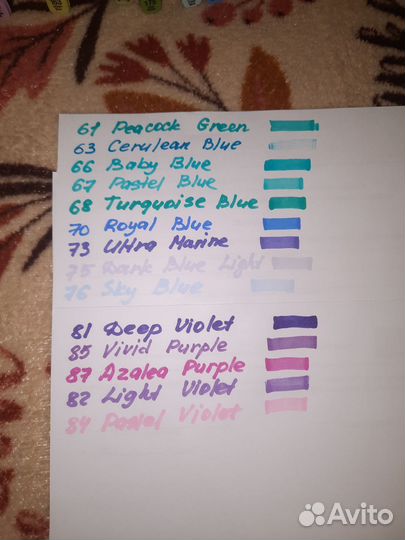 61 Peacock Green
63 Cerulean Blue
66 Baby Blue
67 Pastel Blue
68 Turquoise Blue
70 Royal Blue
73 Ultra Marine
75 Dark Blue Light
76 Sky Blue
81 Deep Violet
85 Vivid Purple
87 Azalea Purple
82 Light Violet
84 Pastel Violet
Avito